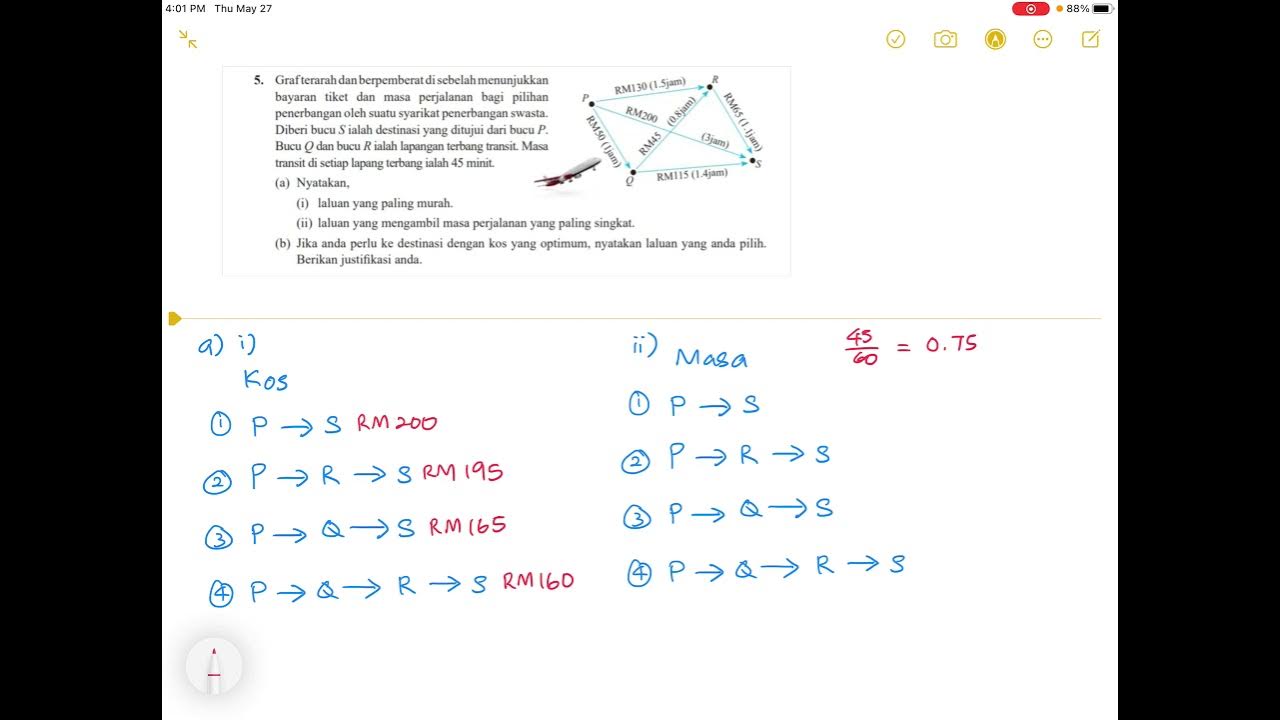 4:01 PM Thu May 27
88%
5. Graf terarah dan berpemberat di sebelah menunjukkan
bayaran tiket dan masa perjalanan bagi pilihan
penerbangan oleh suatu syarikat penerbangan swasta.
Diberi bucu S ialah destinasi yang ditujui dari bucu P.
Bucu Q dan bucu R ialah lapangan terbang transit. Masa
transit di setiap lapang terbang ialah 45 minit.
(a) Nyatakan,
(i) laluan yang paling murah.
(ii) laluan yang mengambil masa perjalanan yang paling singkat.
(b) Jika anda perlu ke destinasi dengan kos yang optimum, nyatakan laluan yang anda pilih.
Berikan justifikasi anda.
P
RM130 (1.5jam)
R
RM200
(3jam)
RM65 (1.1jam)
RM50 (1jam)
RM45 (0.8jam)
S
Q
RM115 (1.4jam)
a) i)
Kos
① P → S RM200
② P → R → S RM195
③ P → Q → S RM165
④ P → Q → R → S RM160
ii) Masa
45/60 = 0.75
① P → S
② P → R → S
③ P → Q → S
④ P → Q → R → S